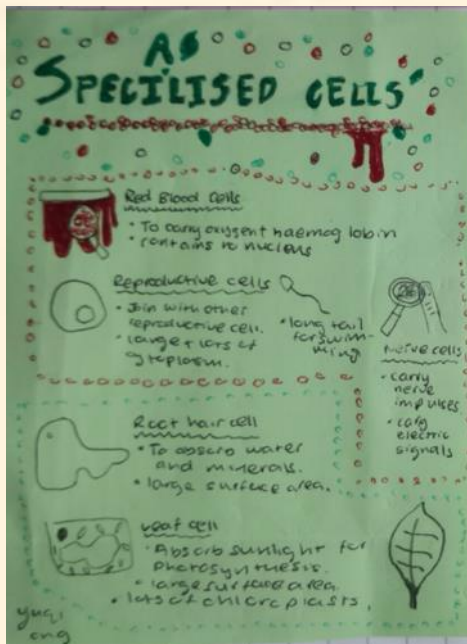 A8
SPECILISED CELLS
Red Blood Cells
• To carry oxygen + haemoglobin
• contains no nucleus
Reproductive cells
• Join with other
reproductive cell.
• large + lots of
cytoplasm.
• long tail
for swim-
ming
Nerve cells
• carry
nerve
impulses.
• carry
electric
signals
Root hair cell
• To absorb water
and minerals.
• large surface area.
Leaf cell
• Absorb sunlight for
photosynthesis.
• large surface area.
• lots of chloroplasts.
yuqi
ong